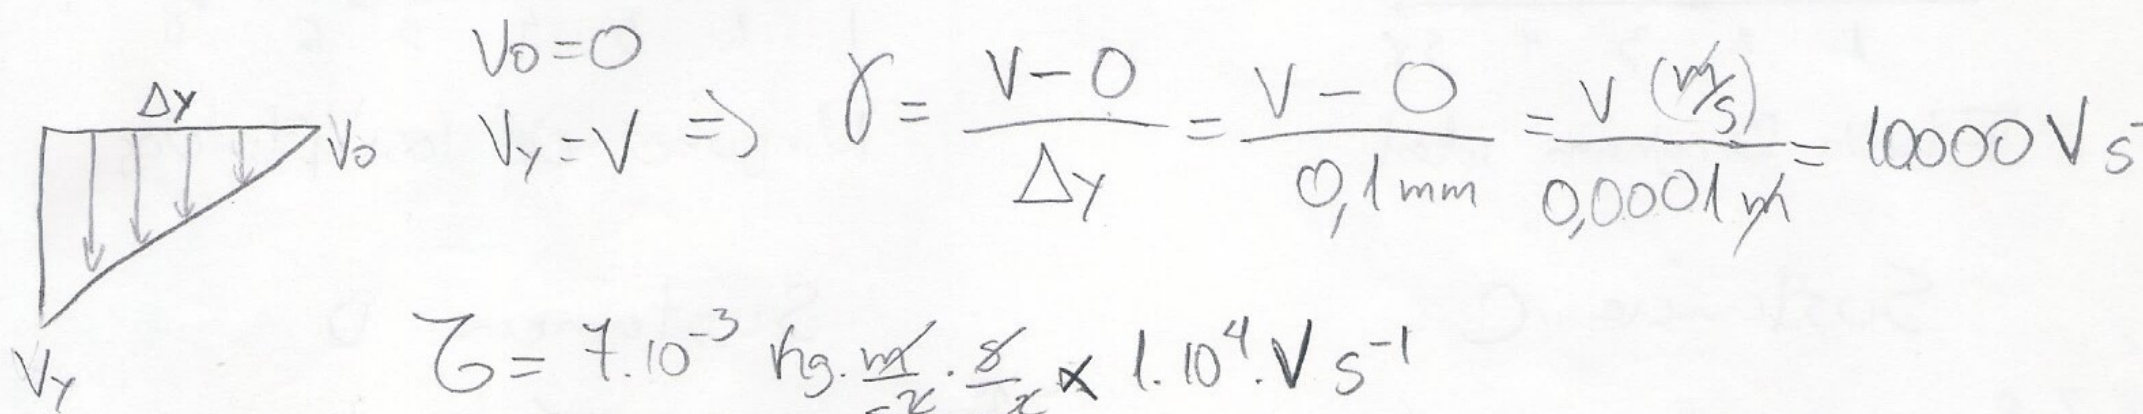 V₀ = 0
Δy
V₀
V_y = V ⇒ γ = (V − 0)/Δy = (V − 0)/(0,1 mm) = (V (m/s))/(0,0001 m) = 10000 V s⁻
τ = 7.10⁻³ kg. m/s² . s/ × 1.10⁴.V s⁻¹
V_y